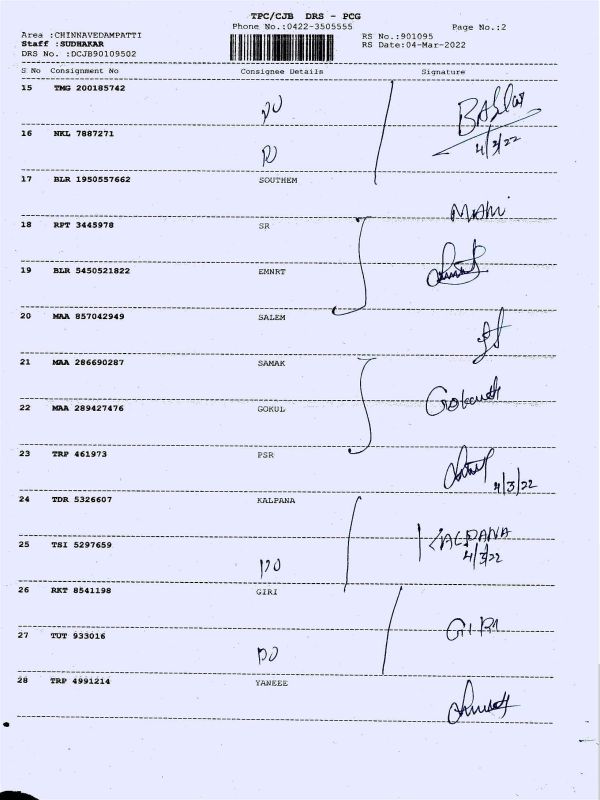 TPC/CJB DRS - PCG
Phone No.:0422-3505555
Page No.:2
Area :CHINNAVEDAMPATTI
RS No.:901095
Staff :SUDHAKAR
RS Date:04-Mar-2022
DRS No. :DCJB90109502
S No Consignment No Consignee Details Signature
15 TMG 200185742
DO
16 NKL 7887271
DO
4/3/22
17 BLR 1950557662 SOUTHEM
MANI
18 RPT 3445978 SR
19 BLR 5450521822 EMNRT
20 MAA 857042949 SALEM
21 MAA 286690287 SAMAK
22 MAA 289427476 GOKUL
23 TRP 461973 PSR
4/3/22
24 TDR 5326607 KALPANA
KALPANA
25 TSI 5297659
DO
4/3/22
26 RKT 8541198 GIRI
GIRI
27 TUT 933016
DO
28 TRP 4991214 YANEEE